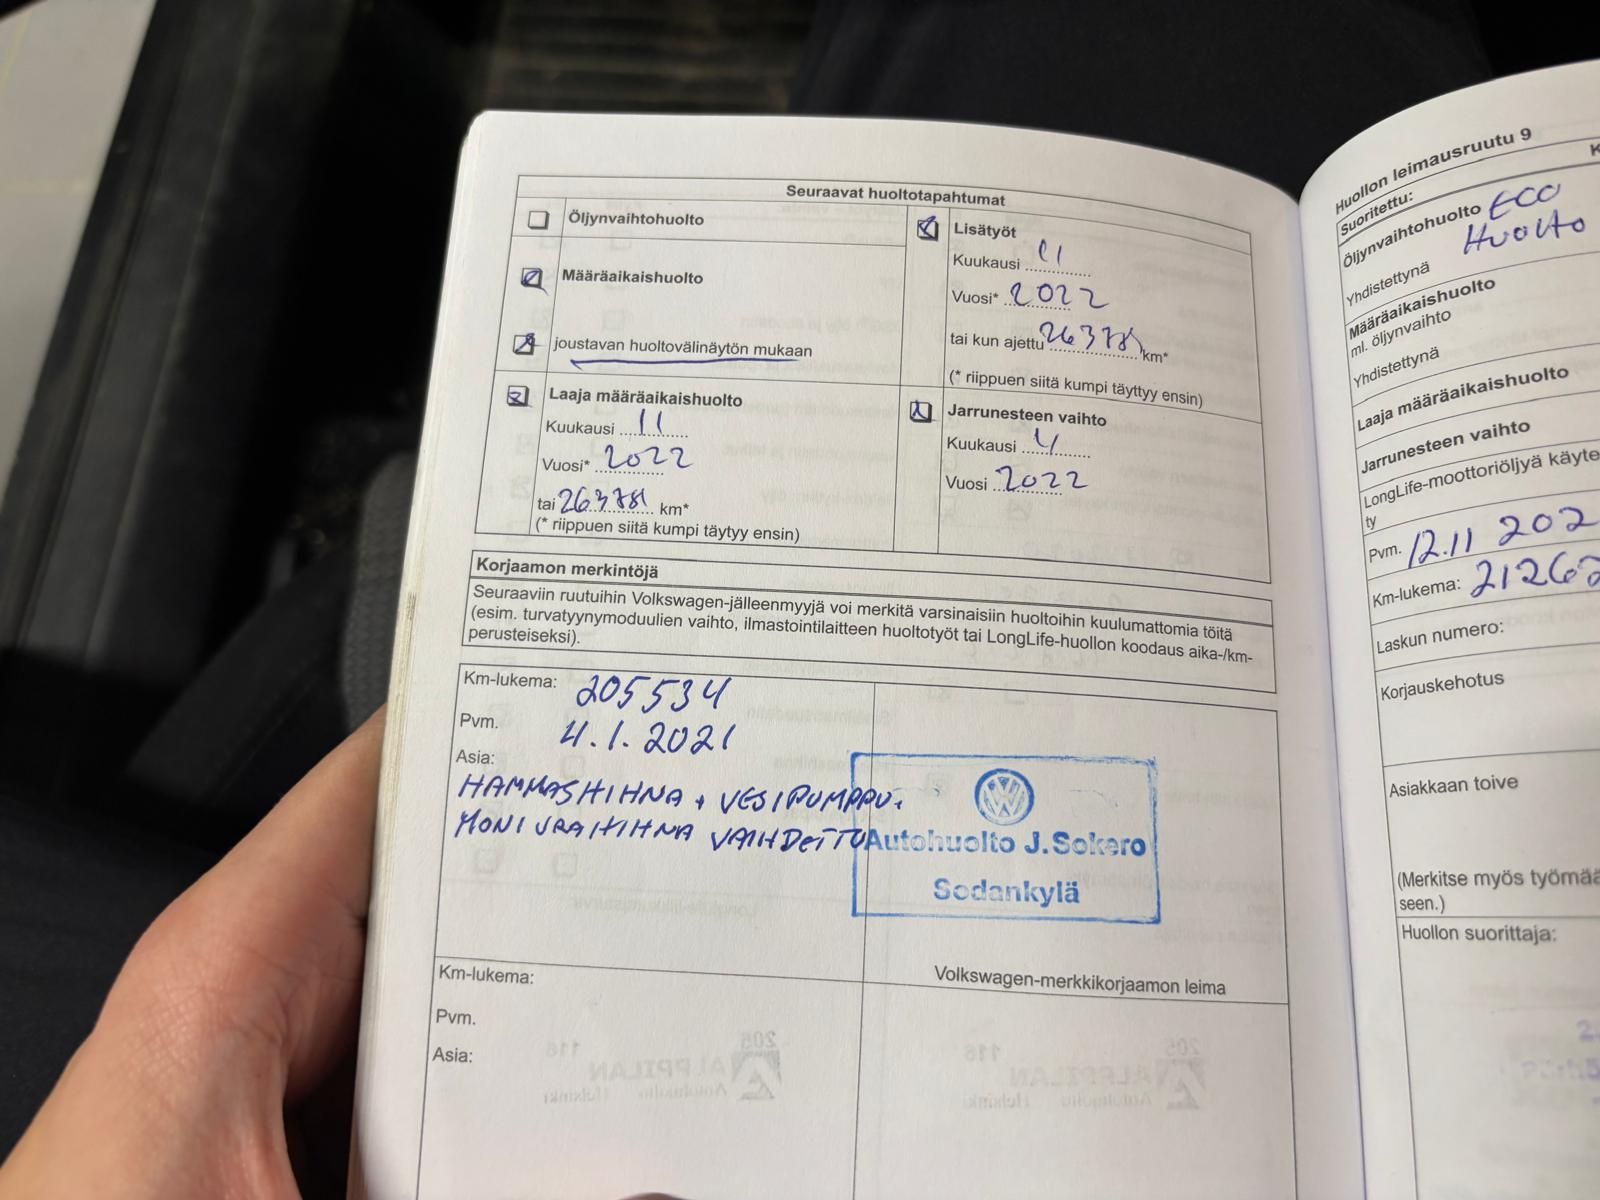 Seuraavat huoltotapahtumat
Öljynvaihtohuolto
Määräaikaishuolto
joustavan huoltovälinäytön mukaan
Lisätyöt
Kuukausi 11
Vuosi* 2022
tai kun ajettu 263781 km*
(* riippuen siitä kumpi täyttyy ensin)
Laaja määräaikaishuolto
Kuukausi 11
Vuosi* 2022
tai 263781 km*
(* riippuen siitä kumpi täytyy ensin)
Jarrunesteen vaihto
Kuukausi 4
Vuosi 2022
Korjaamon merkintöjä
Seuraaviin ruutuihin Volkswagen-jälleenmyyjä voi merkitä varsinaisiin huoltoihin kuulumattomia töitä
(esim. turvatyynymoduulien vaihto, ilmastointilaitteen huoltotyöt tai LongLife-huollon koodaus aika-/km-
perusteiseksi).
Km-lukema: 205534
Pvm. 4.1.2021
Asia:
HAMMASHIHNA + VESIPUMPPU.
MONIURAHIHNA VAIHDETTU
Autohuolto J. Sokero
Sodankylä
Volkswagen-merkkikorjaamon leima
Km-lukema:
Pvm.
Asia:
Huollon leimausruutu 9
Suoritettu:
Öljynvaihtohuolto ECO
HUOLTO
Yhdistettynä
Määräaikaishuolto
ml. öljynvaihto
Yhdistettynä
Laaja määräaikaishuolto
Jarrunesteen vaihto
LongLife-moottoriöljyä käyte
ty
Pvm. 12.11 202
Km-lukema: 21262
Laskun numero:
Korjauskehotus
Asiakkaan toive
(Merkitse myös työmää
seen.)
Huollon suorittaja: